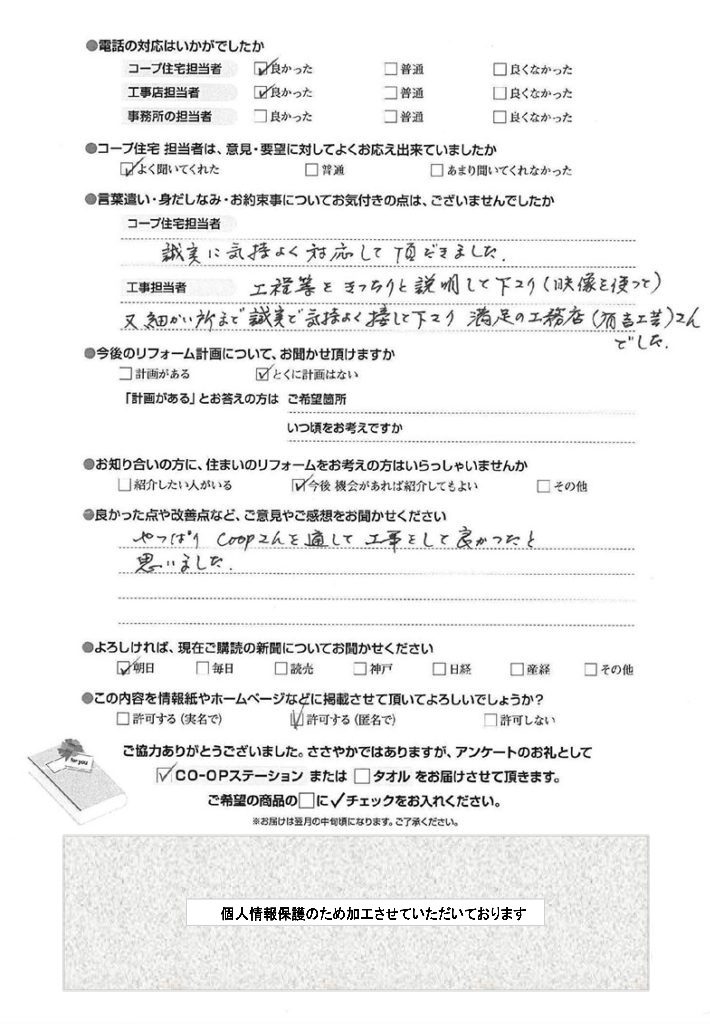 ●電話の対応はいかがでしたか
コープ住宅担当者 ☑良かった □普通 □良くなかった
工事店担当者 ☑良かった □普通 □良くなかった
事務所の担当者 □良かった □普通 □良くなかった
●コープ住宅 担当者は、意見・要望に対してよくお応え出来ていましたか
☑よく聞いてくれた □普通 □あまり聞いてくれなかった
●言葉遣い・身だしなみ・お約束事についてお気付きの点は、ございませんでしたか
コープ住宅担当者
誠実に気持よく対応して頂だきました.
工事担当者 工程等をきっちりと説明して下さり(映像を使って)
又細かい所まで誠実で気持よく接して下さり 満足の工務店(有吉工芸)さん
でした.
●今後のリフォーム計画について、お聞かせ頂けますか
□計画がある ☑とくに計画はない
「計画がある」とお答えの方は ご希望箇所
いつ頃をお考えですか
●お知り合いの方に、住まいのリフォームをお考えの方はいらっしゃいませんか
□紹介したい人がいる ☑今後 機会があれば紹介してもよい □その他
●良かった点や改善点など、ご意見やご感想をお聞かせください
やっぱり Coopさんを通して工事をして良かったと
思いました.
●よろしければ、現在ご購読の新聞についてお聞かせください
☑朝日 □毎日 □読売 □神戸 □日経 □産経 □その他
●この内容を情報紙やホームページなどに掲載させて頂いてよろしいでしょうか?
□許可する(実名で) ☑許可する(匿名で) □許可しない
for you
ご協力ありがとうございました。ささやかではありますが、アンケートのお礼として
☑CO-OPステーション または □タオル をお届けさせて頂きます。
ご希望の商品の□に✓チェックをお入れください。
※お届けは翌月の中旬頃になります。ご了承ください。
個人情報保護のため加工させていただいております